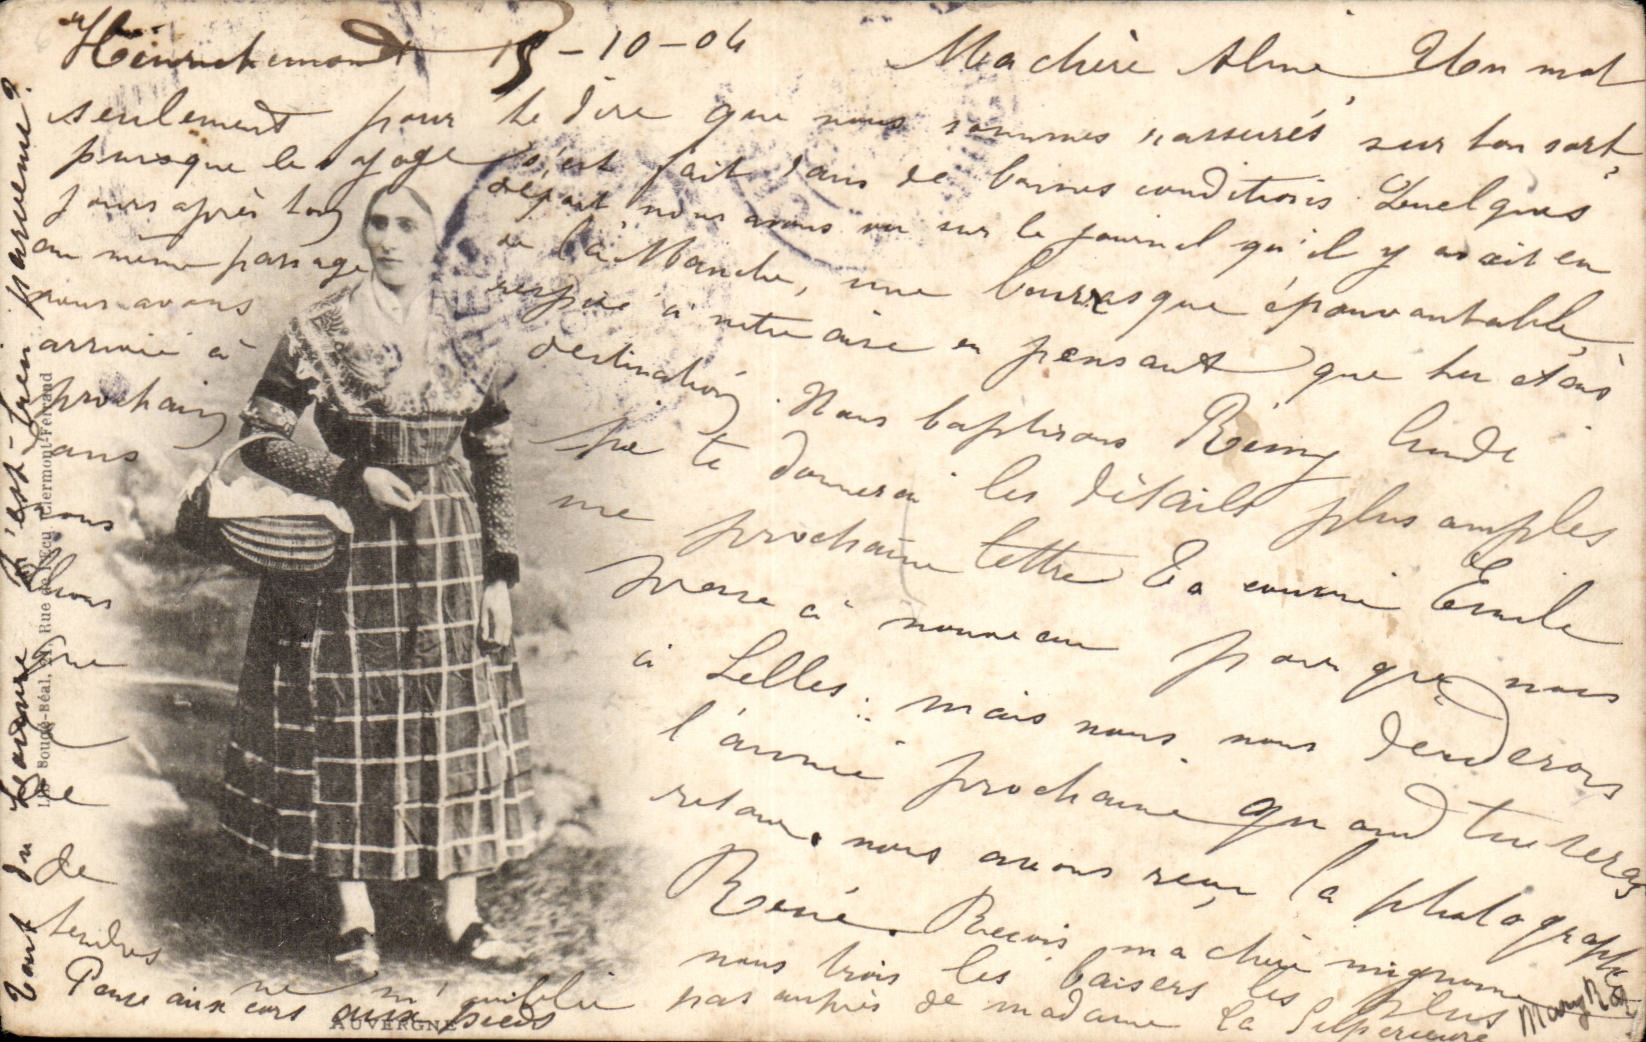 Henrichemont 15-10-04 Ma chère Aline Un mot
seulement pour te dire que nous sommes rassurés sur ton sort,
puisque le voyage s'est fait dans de bonnes conditions. Quelques
jours après ton départ, nous avons vu sur le journal qu'il y avait eu
au même passage de la Manche, une bourrasque épouvantable,
nous avons respiré à notre aise en pensant que tu étais
arrivée à destination. Nous baptisons Rémy lundi
prochain je te donnerai les détails plus amples
dans une prochaine lettre Ta cousine Émile
nous presse à nouveau pour que nous
allions à Lelles : mais nous nous déciderons
que l'année prochaine quand tu seras
de retour. nous avons reçu la photographie
de René. Reçois ma chère mignonne
de nous trois les baisers les plus
tendres
ne m'oublie pas auprès de madame La Supérieure
Mary
Pense aux cors aux pieds
Tout du Ladure n'est-rien parvenu?
AUVERGNE
Rue de l'Écu, Clermont-Ferrand